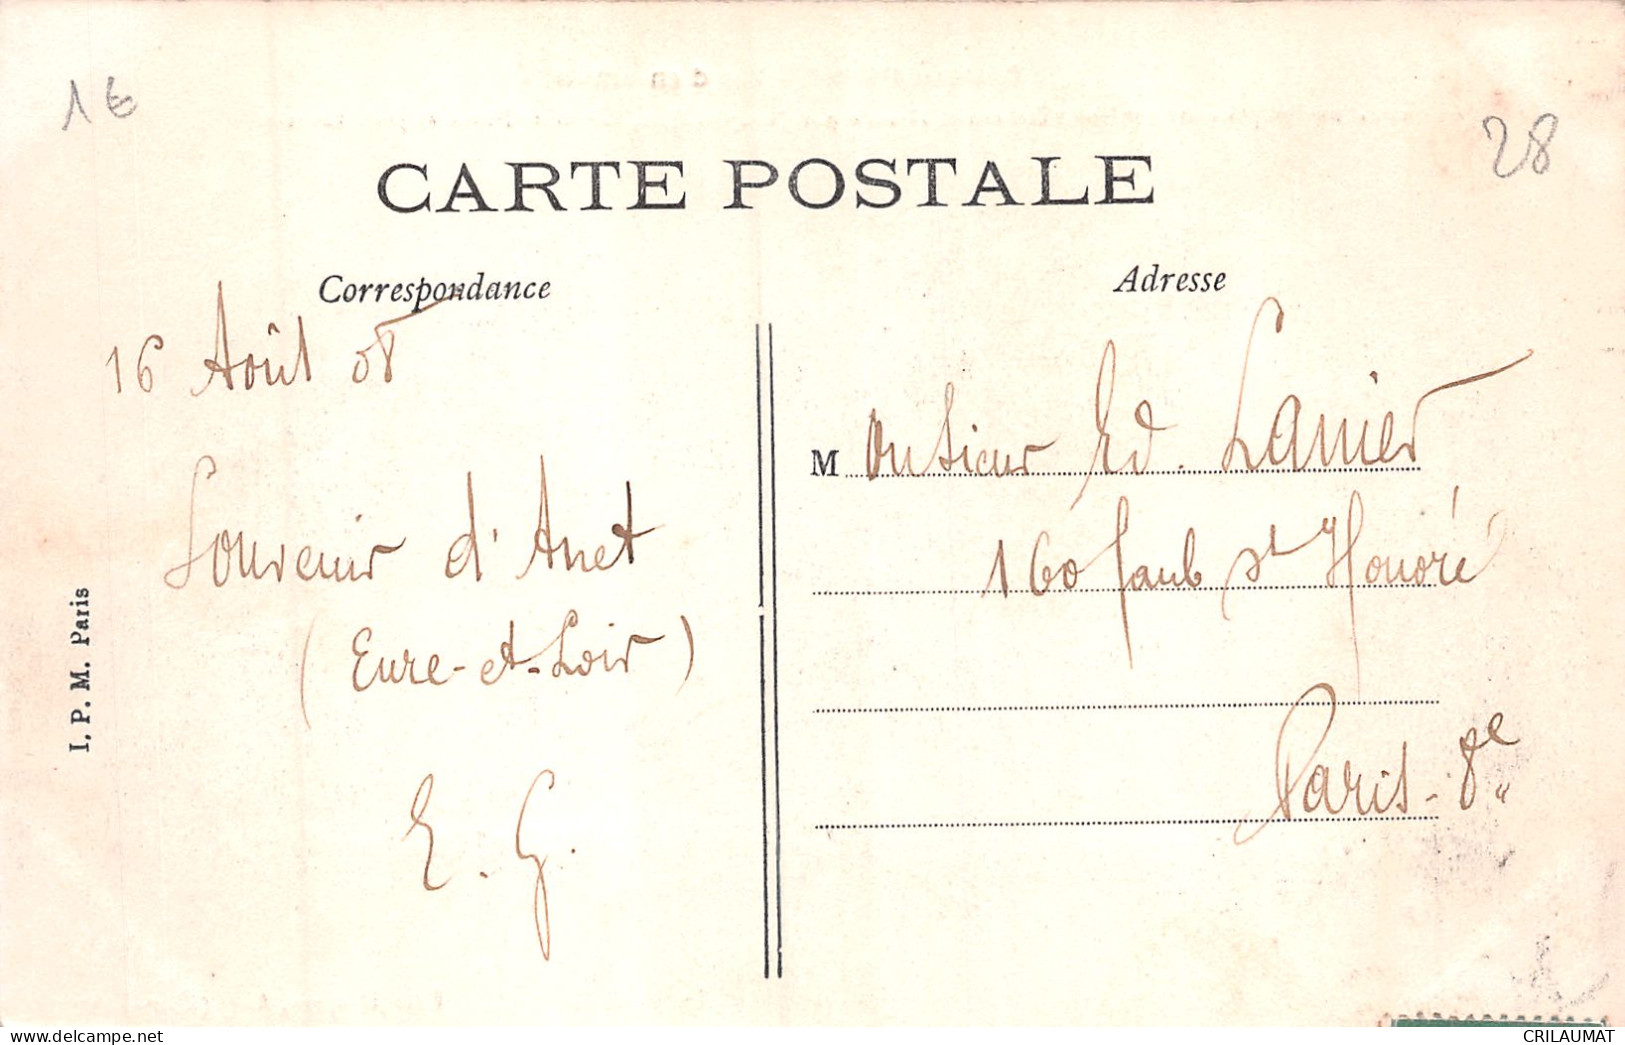 1€
28
CARTE POSTALE
Correspondance
Adresse
16 Août 08
Souvenir d'Anet
(Eure-et-Loir)
E. G.
Monsieur Ed. Lanier
160 faub St Honoré
Paris - 8e
I. P. M. Paris
www.delcampe.net
CRILAUMAT